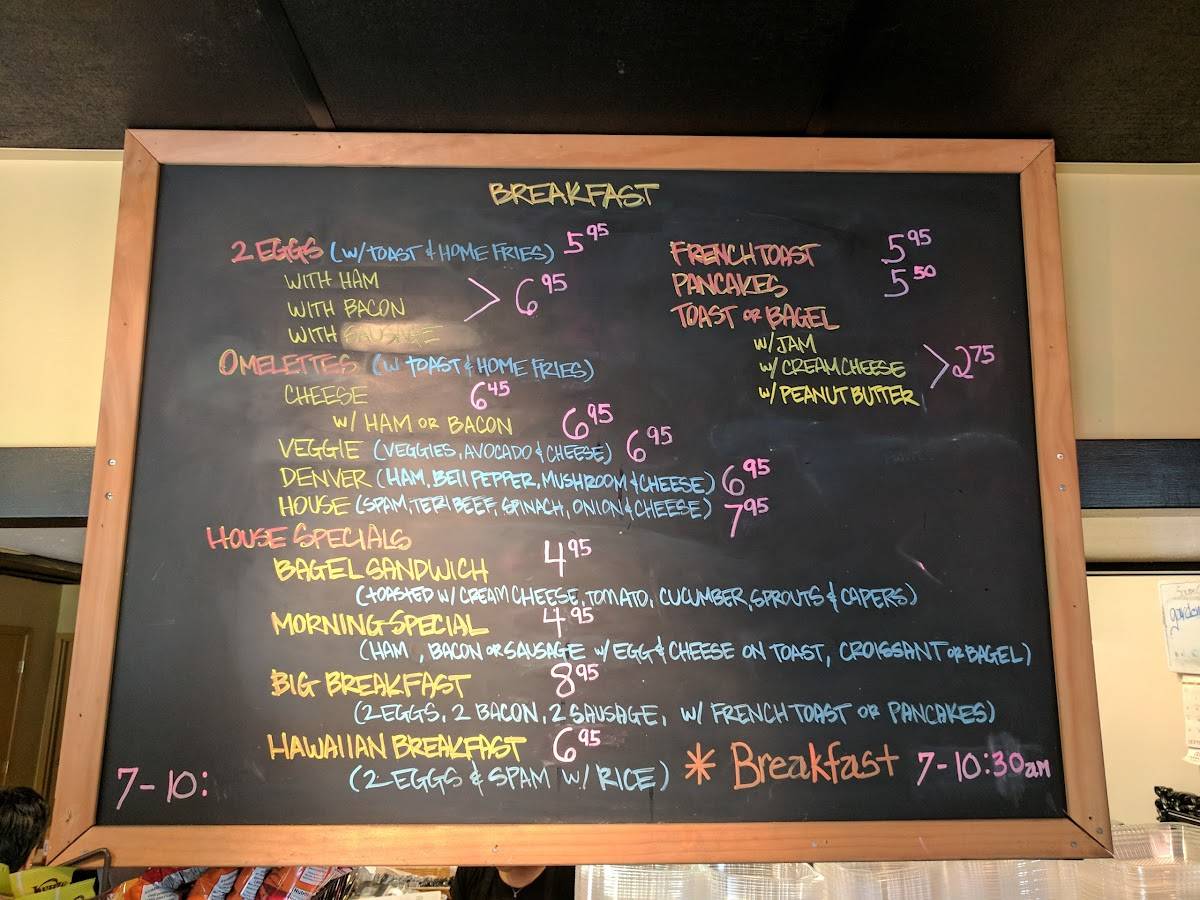 BREAKFAST
2 EGGS (W/ TOAST & HOME FRIES) 5.95
WITH HAM
WITH BACON > 6.95
WITH SAUSAGE
OMELETTES (W TOAST & HOME FRIES)
CHEESE 6.45
W/ HAM OR BACON 6.95
VEGGIE (VEGGIES, AVOCADO & CHEESE) 6.95
DENVER (HAM, BELL PEPPER, MUSHROOM & CHEESE) 6.95
HOUSE (SPAM, TERI BEEF, SPINACH, ONION & CHEESE) 7.95
HOUSE SPECIALS
BAGEL SANDWICH 4.95
(TOASTED W/ CREAM CHEESE, TOMATO, CUCUMBER, SPROUTS & CAPERS)
MORNING SPECIAL 4.95
(HAM, BACON OR SAUSAGE W/ EGG & CHEESE ON TOAST, CROISSANT OR BAGEL)
BIG BREAKFAST 8.95
(2 EGGS, 2 BACON, 2 SAUSAGE, W/ FRENCH TOAST OR PANCAKES)
HAWAIIAN BREAKFAST 6.95
(2 EGGS & SPAM W/ RICE)
7-10:
FRENCH TOAST 5.95
PANCAKES 5.50
TOAST OR BAGEL
W/ JAM
W/ CREAM CHEESE > 2.75
W/ PEANUT BUTTER
* Breakfast 7-10:30am